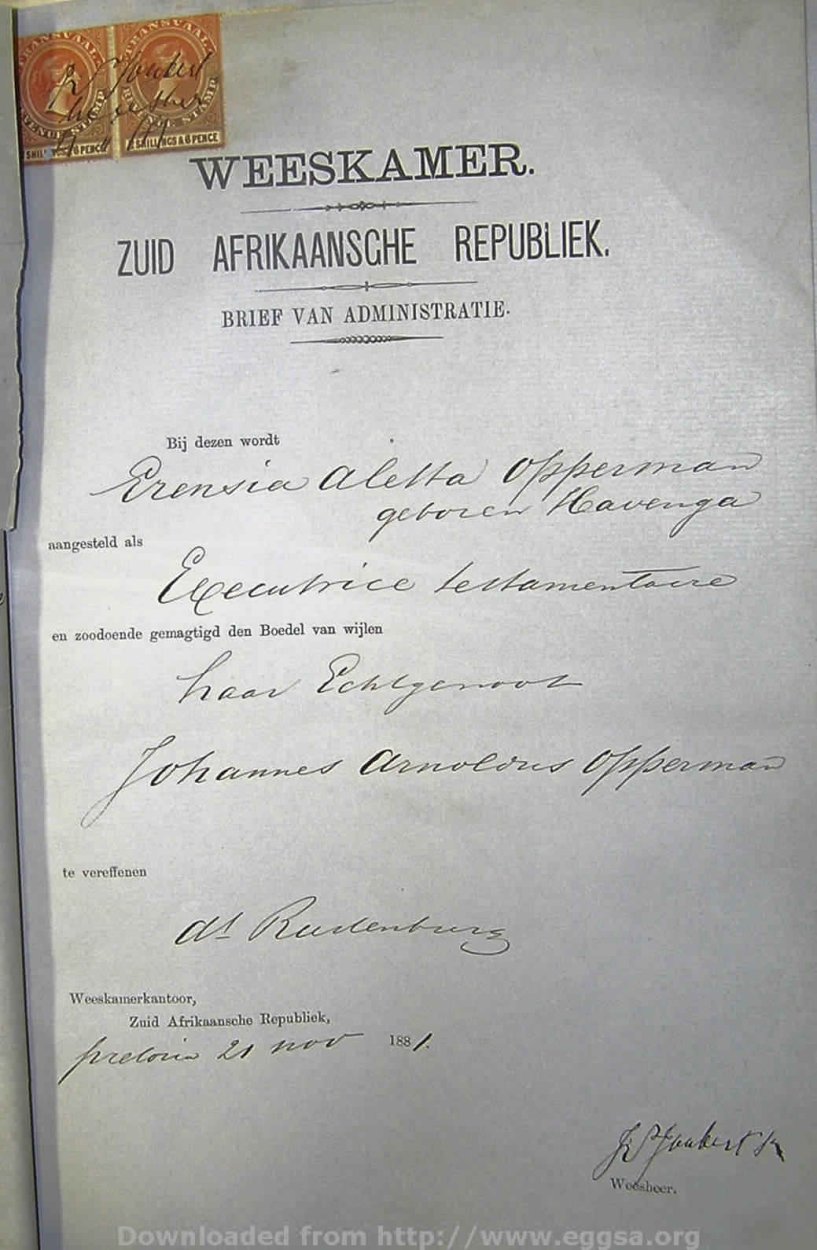 TRANSVAAL TRANSVAAL
REVENUE STAMP REVENUE STAMP
6 PENCE SHILLINGS & 6 PENCE
Joubert
Weesheer
WEESKAMER.
ZUID AFRIKAANSCHE REPUBLIEK.
BRIEF VAN ADMINISTRATIE.
Bij dezen wordt
Erensia Aletta Opperman
geboren Havenga
aangesteld als
Executrice testamentaire
en zoodoende gemagtigd den Boedel van wijlen
haar Echtgenoot
Johannes Arnoldus Opperman
te vereffenen
dt Rustenburg
Weeskamerkantoor,
Zuid Afrikaansche Republiek,
pretoria 21 nov 1881.
Joubert
Weesheer.
Downloaded from http://www.eggsa.org